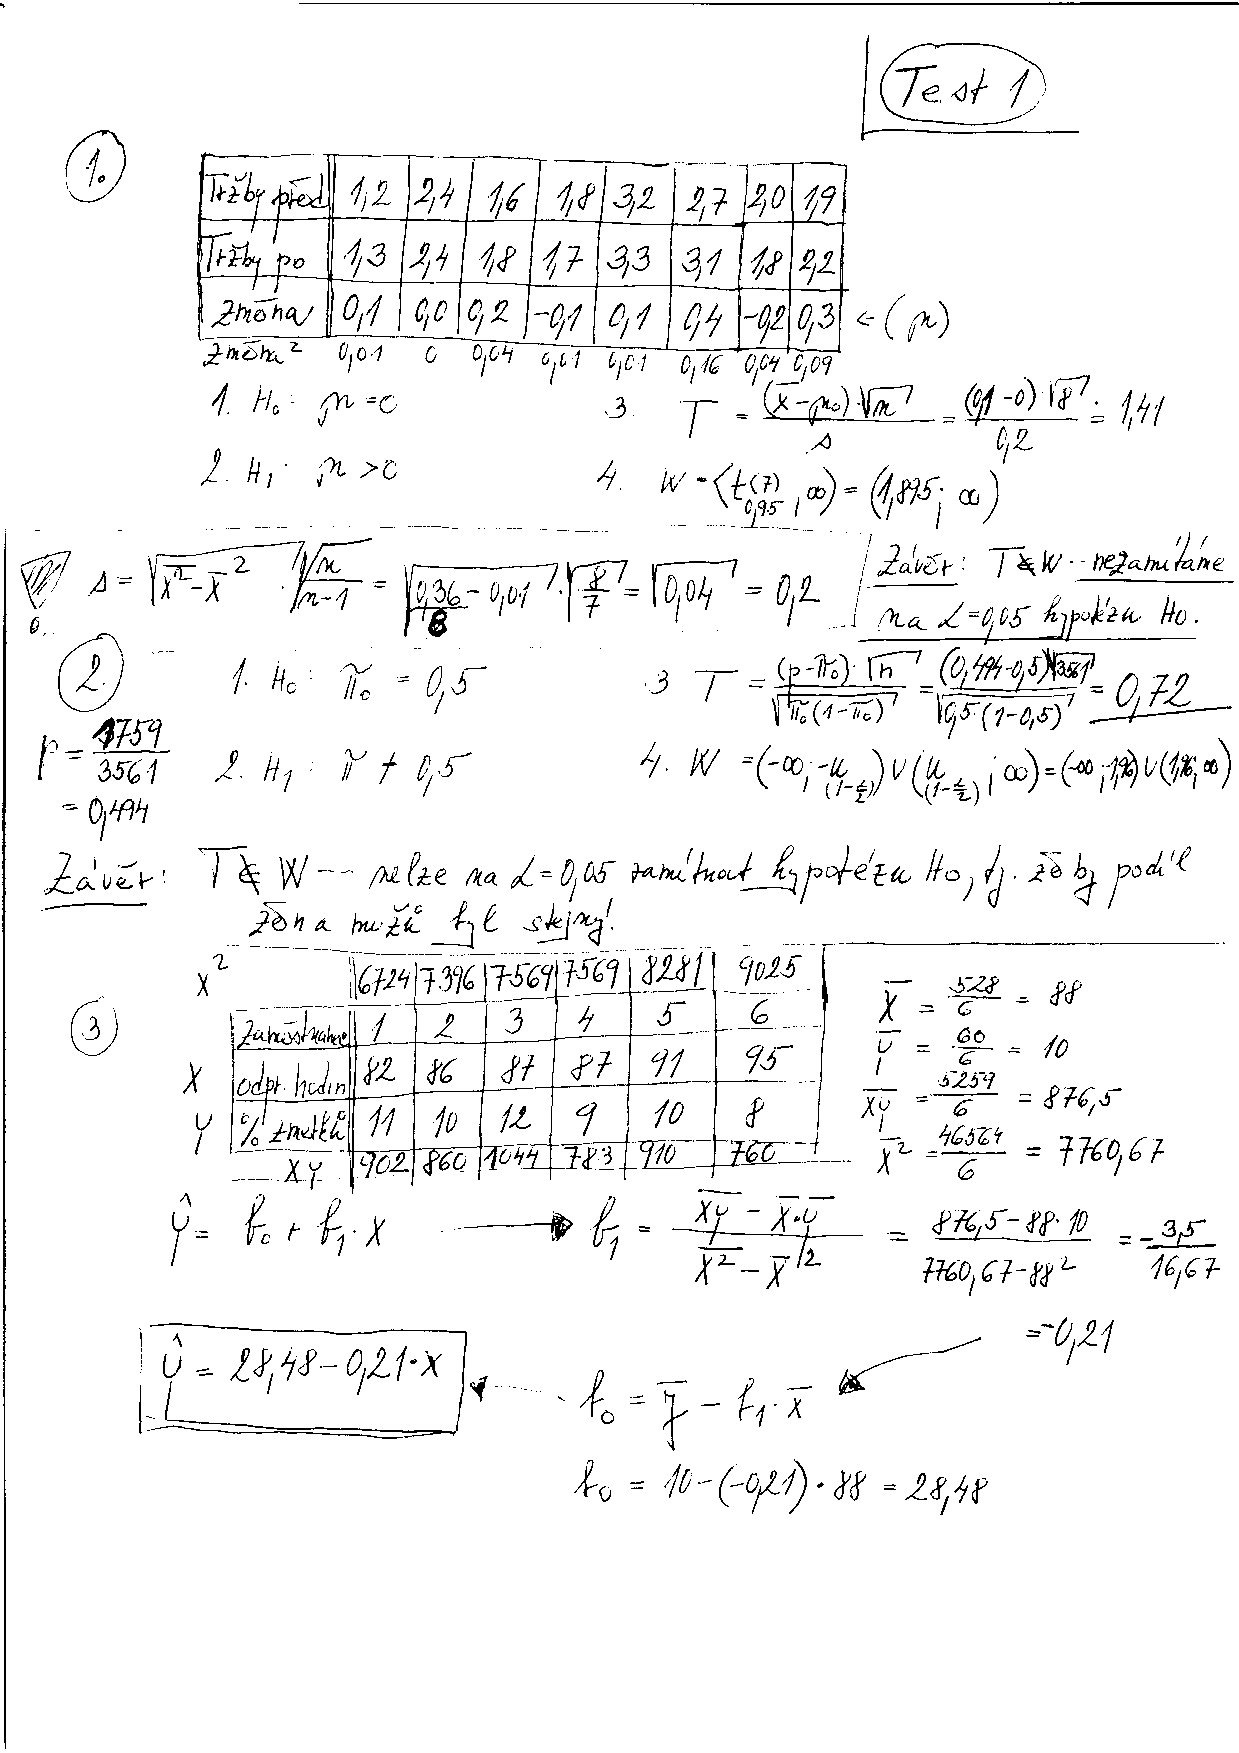 Test 1
1.
Tržby před 1,2 2,4 1,6 1,8 3,2 2,7 2,0 1,9
Tržby po 1,3 2,4 1,8 1,7 3,3 3,1 1,8 2,2
Změna 0,1 0,0 0,2 -0,1 0,1 0,4 -0,2 0,3 ← (μ)
Změna² 0,01 0 0,04 0,01 0,01 0,16 0,04 0,09
1. H₀: μ = 0
3. T = (x̄ - μ₀)·√n / s = (0,1-0)·√8 / 0,2 = 1,41
2. H₁: μ > 0
4. W = ⟨t₀,₉₅(7), ∞) = (1,895; ∞)
s = √(x̄² - x̄²) · √(n/(n-1)) = √(0,36/8 - 0,01) · √(8/7) = √0,04 = 0,2
Závěr: T ∉ W -- nezamítáme
na α = 0,05 hypotézu H₀.
2.
1. H₀: π₀ = 0,5
3 T = (p-π₀)·√n / √(π₀(1-π₀)) = (0,494-0,5)√3561 / √(0,5·(1-0,5)) = 0,72
p = 1759/3561
= 0,494
2. H₁: π ≠ 0,5
4. W = (-∞; -u(1-α/2)) ∪ (u(1-α/2); ∞) = (-∞; -1,96) ∪ (1,96; ∞)
Závěr: T ∉ W -- nelze na α = 0,05 zamítnout hypotézu H₀, tj. že by podíl
žen a mužů byl stejný!
3
X² 6724 7396 7569 7569 8281 9025
Zaměstnanec 1 2 3 4 5 6
X odpr. hodin 82 86 87 87 91 95
Y % zmetků 11 10 12 9 10 8
XY 902 860 1044 783 910 760
X̄ = 528/6 = 88
Ȳ = 60/6 = 10
X̄Ȳ = 5259/6 = 876,5
X̄² = 46564/6 = 7760,67
Ŷ = b₀ + b₁·X → b₁ = (X̄Ȳ - X̄·Ȳ) / (X̄² - X̄²) = (876,5 - 88·10) / (7760,67 - 88²) = -3,5/16,67
= -0,21
ŷ = 28,48 - 0,21·X
b₀ = ȳ - b₁·x̄
b₀ = 10 - (-0,21)·88 = 28,48